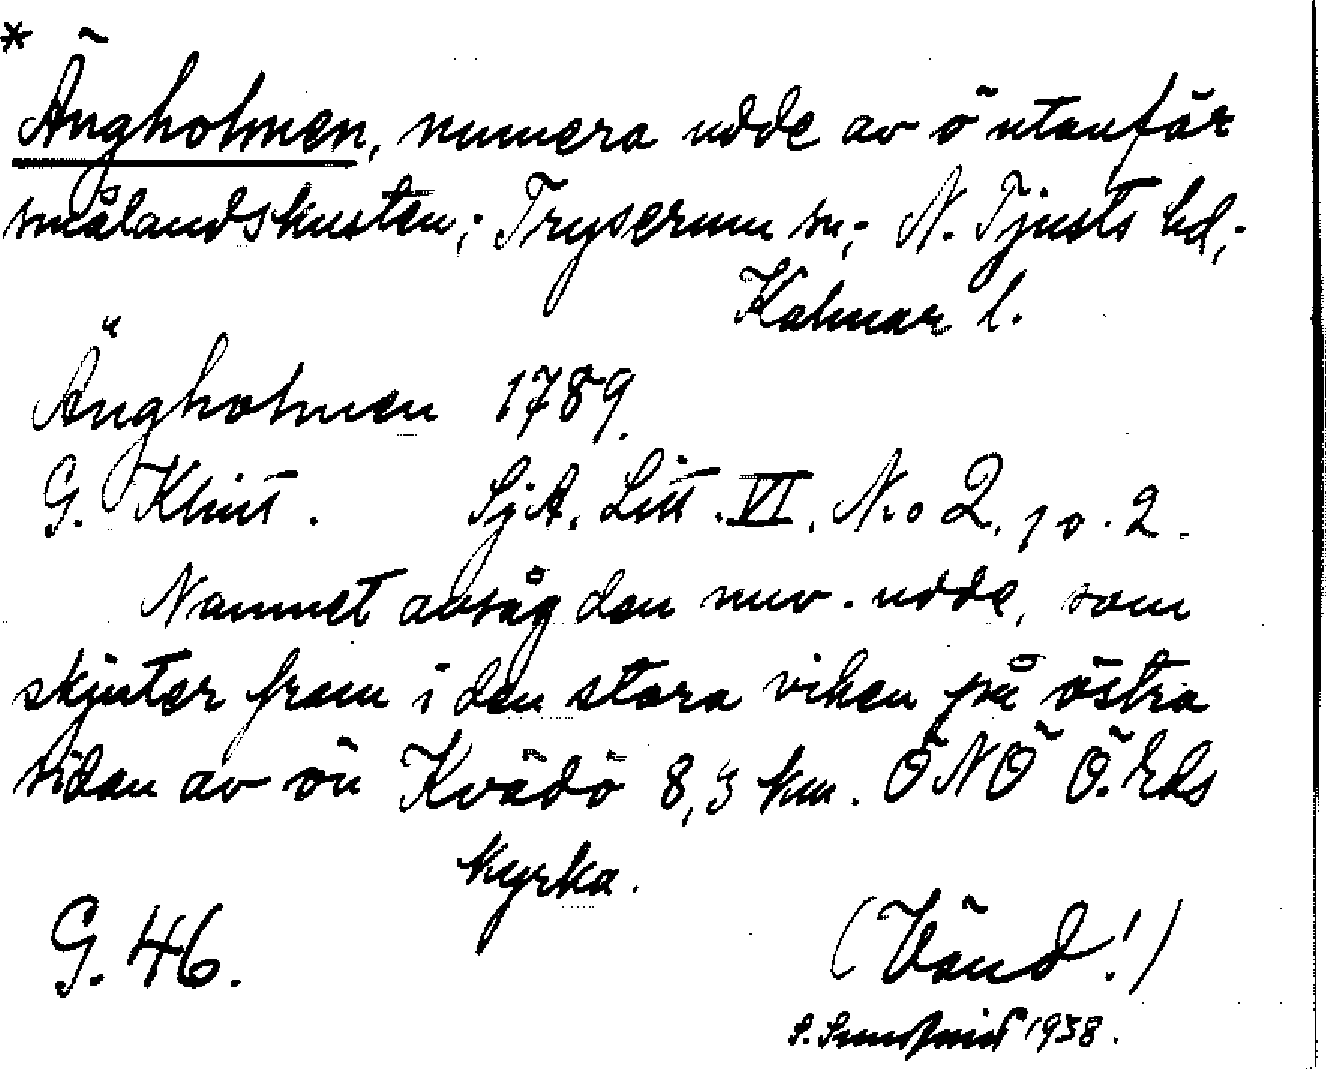 *
Ängholmen, numera udde av ö utanför
smålandskusten; Tryserum sn; N. Tjusts hd;
Kalmar l.
Ängholmen 1789.
G. Klint. SjA. Litt. VI. No 2. po. 2.
Namnet avsåg den nuv. udde, som
skjuter fram i den stora viken på östra
sidan av ön Kvädö 8,3 km. ÖNÖ Ö. Eds
kyrka.
G. 46.
(Vänd!)
S. 1938.